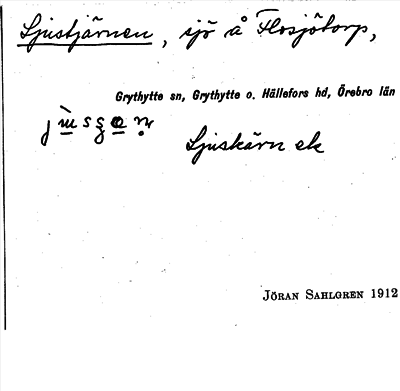 Ljustjärnen, sjö å Flosjötorp,
Grythytte sn, Grythytte o. Hällefors hd, Örebro län
Ljuskärn ek
JÖRAN SAHLGREN 1912